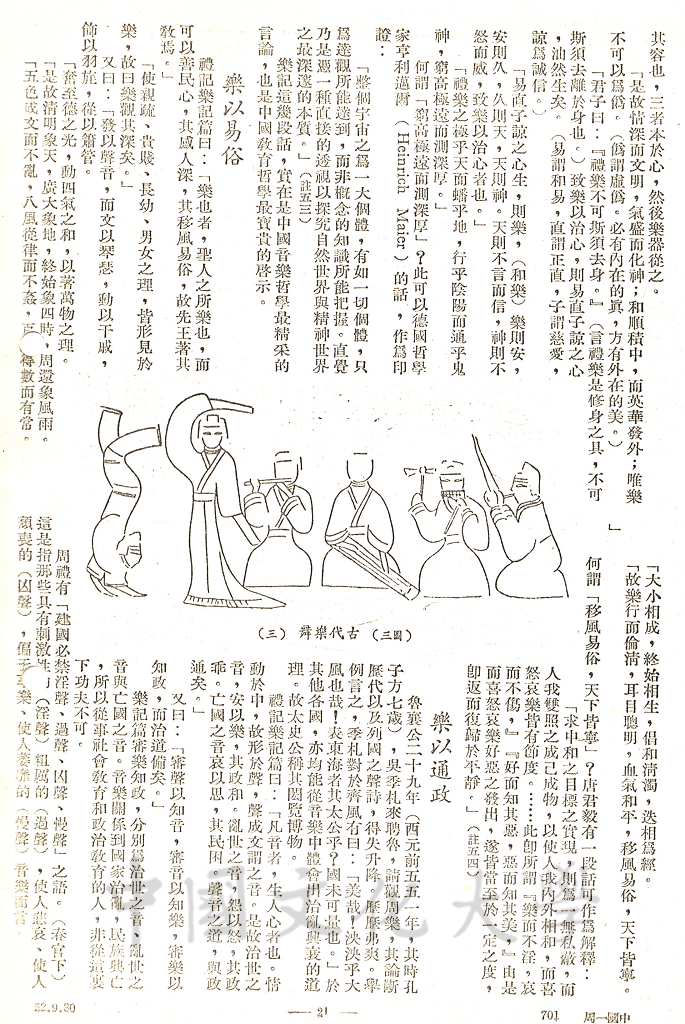 其容也，三者本於心，然後樂器從之。
「是故情深而文明，氣盛而化神；和順積中，而英華發外；唯樂
不可以爲僞。（僞謂虛僞。必有內在的眞，方有外在的美。）」
「君子曰：『禮樂不可斯須去身。』（言禮樂是修身之具，不可
斯須去離於身也。）致樂以治心，則易直子諒之心
，油然生矣。（易謂和易，直謂正直，子謂慈愛，
諒爲誠信。）
「易直子諒之心生，則樂，（和樂）樂則安，
安則久，久則天，天則神。天則不言而信，神則不
怒而威，致樂以治心者也。」
「禮樂之極乎天而蟠乎地，行乎陰陽而通乎鬼
神，窮高極遠而測深厚。」
何謂「窮高極遠而測深厚」？此可以德國哲學
家亨利邁爾（Heinrion Maier）的話，作爲印
證：
「整個宇宙之爲一大個體，有如一切個體，只
爲達觀所能達到，而非概念的知識所能把握。直覺
乃是憑一種直接的透視以探究自然世界與精神世界
之最深邃的本質。」（註五三）
樂記這幾段話，實在是中國音樂哲學最精采的
言論，也是中國敎育哲學最寶貴的啓示。
樂以易俗
禮記樂記篇曰：「樂也者，聖人之所樂也，而
可以善民心，其感人深，其移風易俗，故先王著其
敎焉。」
「使親疏、貴賤、長幼、男女之理，皆形見於
樂，故曰樂觀其深矣。」
又曰：「發以聲音，而文以琴瑟，動以干戚，
飾以羽旄，從以簫管。
「奮至德之光，動四氣之和，以著萬物之理。
「是故淸明象天，廣大象地，終始象四時，周還象風雨。
「五色成文而不亂，八風從律而不姦，百 得數而有常。
「大小相成，終始相生，倡和淸濁，迭相爲經。
「故樂行而倫淸，耳目聰明，血氣和平，移風易俗，天下皆寧。
何謂「移風易俗，天下皆寧」？唐君毅有一段話可作爲解釋：
「求中和之目標之實現，則爲無私敵，而
人我雙照之成己成物，以使人我內外相和，而喜
怒哀樂皆有節度。……此卽所謂『樂而不淫，哀
而不傷，』『好而知其惡，惡而知其美，』由是
而喜怒哀樂好惡之發出，遂皆當至於一定之度，
卽返而復歸於平靜。」（註五四）
樂以通政
魯襄公二十九年（西元前五五一年，其時孔
子方七歲），吳季札來聘魯，請觀周樂，其論斷
歷代以及列國之聲詩，得失升降。歷歷弗爽。舉
例言之，季札對於齊風有曰：「美哉！泱泱乎大
風也哉！表東海者其太公乎？國未可量也。」於
其他各國，亦均能從音樂中體會出治亂興衰的道
理。故太史公稱其閎覽博物。
禮記樂記篇曰：「凡音者，生人心者也。情
動於中，故形於聲，聲成文謂之音。是故治世之
音，安以樂，其政和。亂世之音，怨以怒，其政
乖。亡國之音哀以思，其民困。聲音之道，與政
通矣。」
又曰：「審聲以知音，審音以知樂，審樂以
知政，而治道備矣。」
樂記篇審樂知政，分別爲治世之音、亂世之
音與亡國之音。音樂關係到國家治亂，民族興亡
，所以從事社會敎育和政治敎育的人，非從這裏
下功夫不可。
周禮有「建國必禁淫聲、過聲、凶聲、慢聲」之語。（春官下）
這是指那些具有刺激性（淫聲）粗厲的（過聲），使人悲哀、使人
頹喪的（凶聲），偏 樂、使人萎靡的（慢聲）音樂而言。
（圖三）古代樂舞（三）
52.9.30
— 21 —
701
中國一周
中國文化大學